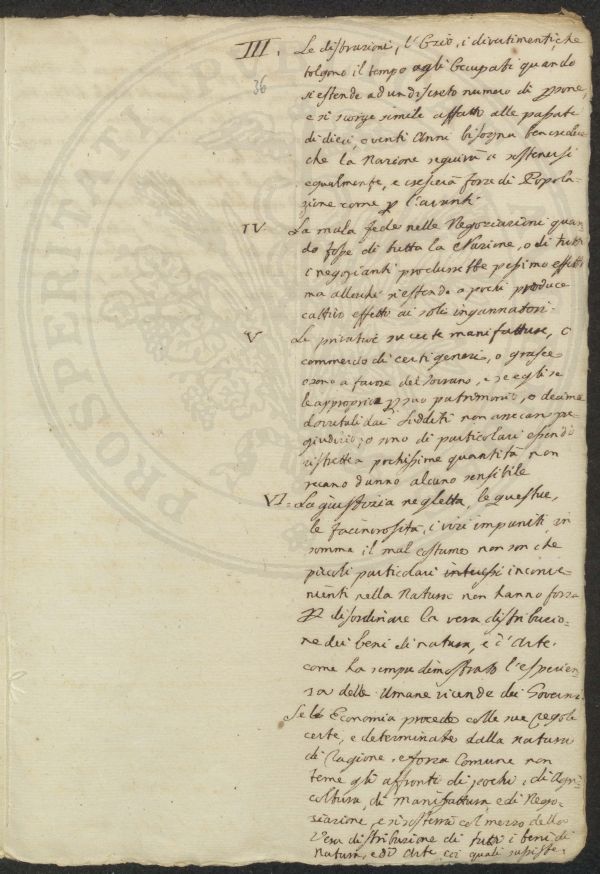 III. Le distrazioni, l'Ozio, i divertimenti, che
36
tolgono il tempo agli Occupati quando
si estende ad un discreto numero di
e si scorge simile affatto alle passate
di dieci, o venti Anni bisogna ben credere
che la Nazione seguirà a sostenersi
egualmente, e crescerà forze di Popola-
zione come p l'avanti.
IV La mala fede nelle Negoziazioni quan-
do fosse di tutta la Nazione, o di tutti
i negozianti produrrebbe pessimo effetto
ma allorché si estende a pochi produce
cattivo effetto ai soli ingannatori.
V Le privative su certe manifatture, o
commercio di certi generi, o grasce
o sono a favore del sovrano, e se egli se
le appropria p suo patrimonio, o decima
dovutali dai Sudditi non arrecan pre-
giudizio, o sono di particolari essendo
ristrette a pochissime quantità non
recano danno alcuno sensibile
VI. La giustizia negletta, le
le facinorosità, i vizi impuniti in
somma il mal costume non son che
piccoli particolari interessi inconve-
nienti nella Natura non hanno forza
p disordinare la vera distribuzio-
ne dei beni di natura, e d'Arte.
come ha sempre dimostrato l'esperien-
za delle Umane vicende dei Governi.
Se le Economia procede colle sue regole
certe, e determinate dalla natura
di ragione, e forza Comune non
teme gli affronti di pochi, di Agri-
coltura, di manifattura, e di Nego-
ziazione, e si sosterrà col mezzo della
Vera distribuzione di tutti i beni di
natura, e di Arte coi quali sussiste.
PROSPERITATI